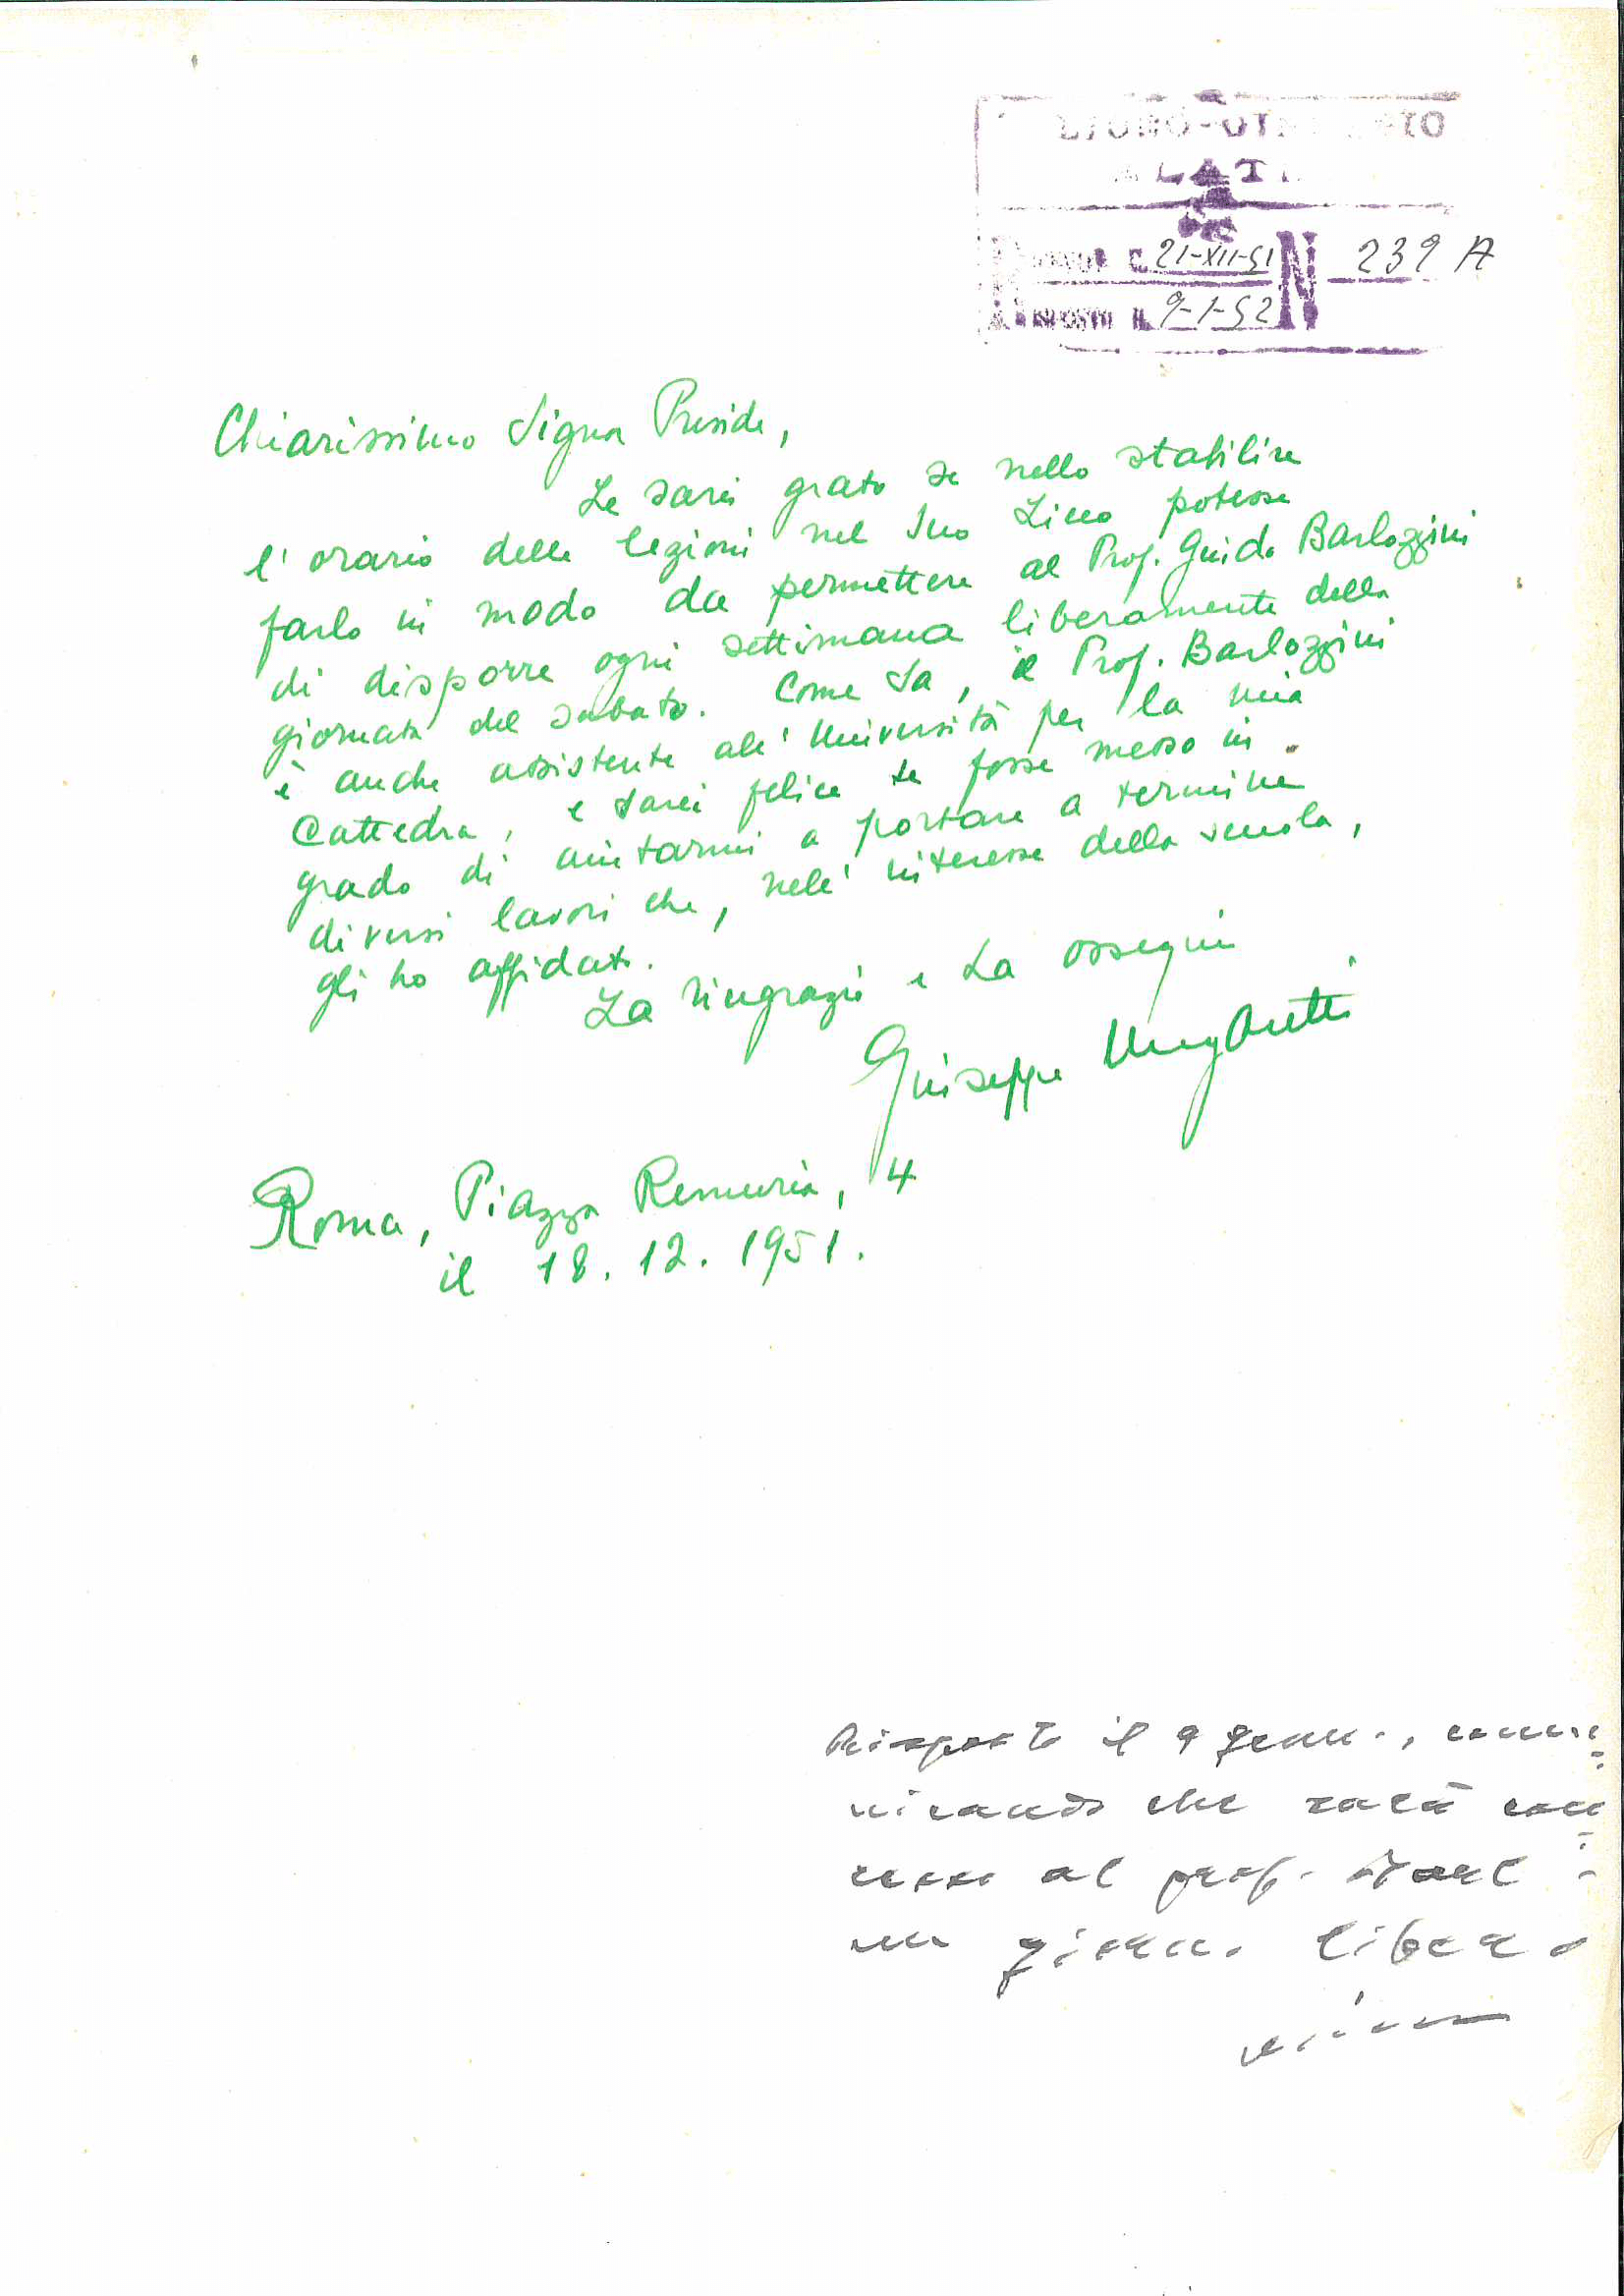 ALATRI
21-XII-51 N 239 A
9-1-52
Chiarissimo Signor Preside,
Le sarei grato se nello stabilire
l'orario delle lezioni nel Suo Liceo potesse
farlo in modo da permettere al Prof. Guido Barlozzini
di disporre ogni settimana liberamente della
giornata del sabato. Come Sa, il Prof. Barlozzini
è anche assistente all'Università per la mia
Cattedra, e sarei felice se fosse messo in
grado di aiutarmi a portare a termine
diversi lavori che, nell'interesse della scuola,
gli ho affidato.
La ringrazio e La ossequio
Giuseppe Ungaretti
Roma, Piazza Remuria, 4
il 18.12.1951.
Risposto il 9 genn., comu-
nicando che sarà con-
cesso al prof. Barl.
un giorno libero